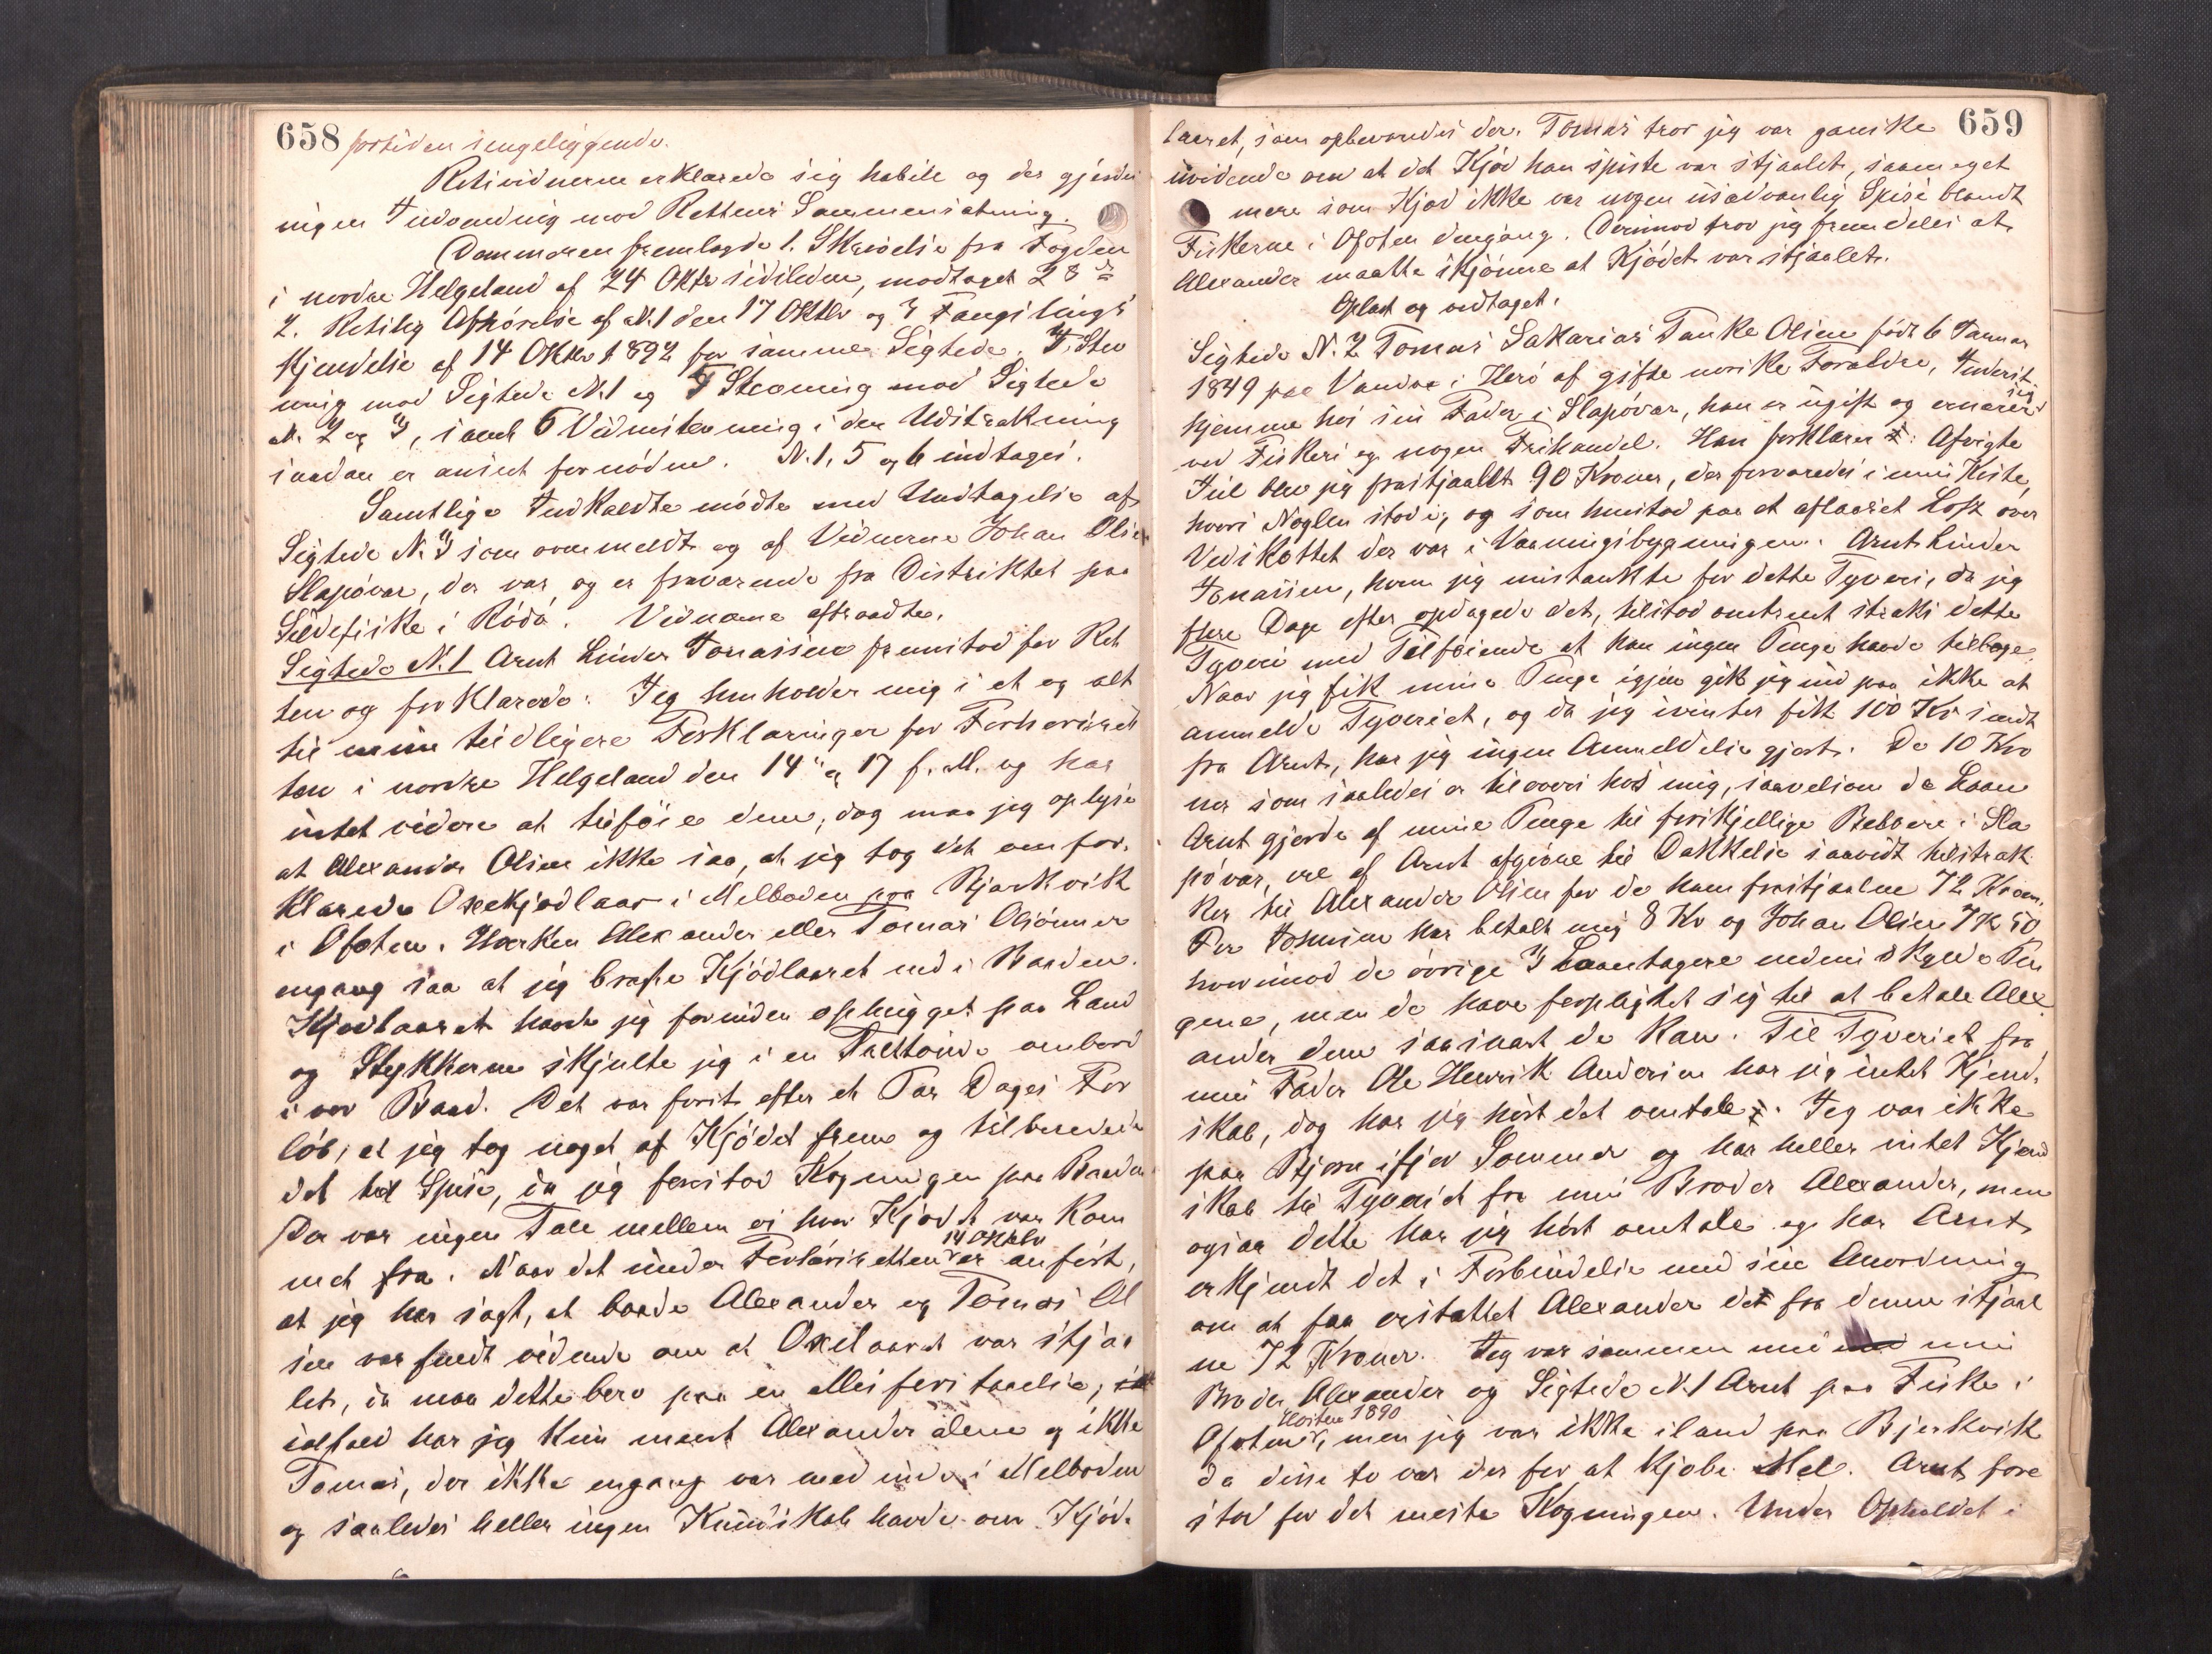 658 fortiden sengeliggende.
Retsvidnerne erklærede sig habile og der gjordes
ingen Indvending mod Rettens Sammensætning.
Dommeren fremlagde 1. Skrivelse fra Fogden
i nordre Helgeland af 24 Oktbr sidstleden, modtaget 28de
2. Retslig Afhörelse af No 1 den 17 Oktbr og 3 Fængslings
kjendelse af 14 Oktbr 1892 for samme Sigtede. 4 Stev
ning mod Sigtede No 1 og 5 Stevning mod Sigtede
No. 2 og 3, samt 6 Vidnestevning i den Udstrækning
saadan er anseet fornöden. No. 1, 5 og 6 indtages.
Samtlige Indkaldte mödte med Undtagelse af
Sigtede No. 3 som ovenmeldt og af Vidnerne Johan Olsen
Slapövær, der var og er fraværende fra Distriktet paa
Sildefiske i Rödö. Vidnerne aftraadte.
Sigtede No. 1 Arnt Linder Jonassen fremstod for Ret
ten og forklarede: Jeg henholder mig i et og alt
til min tidligere Forklaringer for Forhörsret
ten i nordre Helgeland den 14de og 17 f. M. og har
intet videre at tilföie dem, dog maa jeg oplyse
at Alexander Olsen ikke saa, at jeg tog det omfor-
klarede Oxekjödlaar i Melboden paa Bjerkvik
i Ofoten. Hverken Alexander eller Tomas Olsönner
engang saa at jeg bragte Kjödlaaret ned i Baaden.
Kjödlaaret havde jeg forinden ophugget paa Land
og Stykkerne skjulte jeg i en Trættönde ombord
i vor Baad. Det var först efter et Par Dages For
löb, at jeg tog noget af Kjödet frem og tilberedede
det til Spise, da jeg forestod Kogningen paa Baaden
Der var ingen Tale mellem os hvor Kjödet var kom
met fra. Naar det under Forhörsretten 14 Oktbr er anfört,
at jeg har sagt, at baade Alexander og Tomas Ol
sen var fuldt vidende om at Oxelaaret var stjaa
let, da maa dette bero paa en Misforstaaelse;
ialfald har jeg kun ment Alexander alene og ikke
Tomas, der ikke engang var med inde i Melboden
og saaledes heller ingen Kundskab havde om Kjöd-
659
laaret, som opbevaredes der. Tomas tror jeg var ganske
uvidende om at det Kjöd han spiste var stjaalet, saameget
mere som Kjöd ikke var nogen usædvanlig Spise blandt
Fiskerne i Ofoten dengang. Derimod tror jeg fremdeles at
Alexander maatte skjönne at Kjödet var stjaalet.
Oplæst og vedtaget.
Sigtede No. 2 Tomas Sakarias Tanke Olsen födt 6 Januar
1849 paa Vandve i Herö af gifte norske Forældre, Inderst
hjemme hos sin Fader i Slapövær, han er ugift og ernærer sig
ved Fiskeri og nogen Frihandel. Han forklarer: Afvigte
Jul blev jeg frastjaalet 90 Kroner, der forvaredes i min Kiste,
hvori Nöglen stod i, og som henstod paa et aflaaset Loft over
Vedskottet der var i Vaaningsbygningen. Arnt Linder
Jonassen, hvem jeg mistænkte for dette Tyveri, da jeg
flere Dage efter opdagede det, tilstod omtrent straks dette
Tyveri med Tilföiende at han ingen Penge havde tilbage
Naar jeg fik mine Penge igjen gik jeg ind paa ikke at
anmelde Tyveriet, og da jeg ivinter fik 100 Kr sendt
fra Arnt, har jeg ingen Anmeldelse gjort. De 10 Kro
ner som saaledes er tilovers hos mig, saavelsom de Laan
Arnt gjorde af mine Penge til forskjellige Beboere i Sla
pövær, ere af Arnt afgivne til Dækkelse saavidt tilstræk
ker til Alexander Olsen for de ham frastjaalne 72 Kroner.
Per Johnsen har betalt mig 8 Kr og Johan Olsen 7 K 50
hvorimod de övrige 3 Laantagere endnu skylde Pen
gene, men de have forpligtet sig til at betale Alex
ander dem saasnart de kan. Til Tyveriet fra
min Fader Ole Henrik Andersen har jeg intet Kjend-
skab, dog har jeg hört det omtale. Jeg var ikke
paa Bjærn ifjor Sommer og har heller intet Kjend
skab til Tyveriet fra min Broder Alexander, men
ogsaa dette har jeg hört omtale og har Arnt
erkjendt det i Forbindelse med sin Anordning
om at faa erstattet Alexander de fra denne stjaal
ne 72 Kroner. Jeg var sammen med min
Broder Alexander og Sigtede No 1 Arnt paa Fiske i
Ofoten Hösten 1890, men jeg var ikke iland paa Bjerkvik
da disse to var der for at kjöbe Mel. Arnt fore
stod for det meste Kogningen. Under Opholdet i